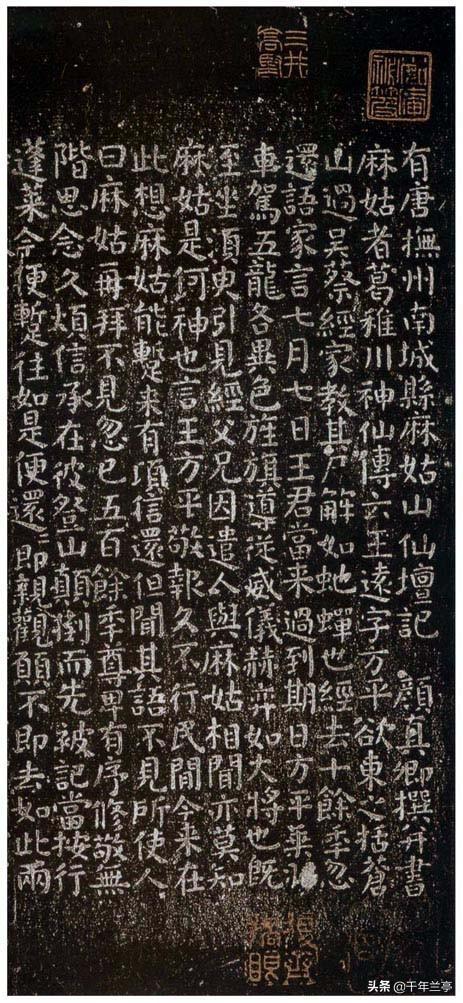 三井高堅
有唐撫州南城縣麻姑山仙壇記　顏真卿撰并書
麻姑者葛稚川神仙傳云王遠字方平欲東之括蒼
山過吳蔡經家教其尸解如虵蟬也經去十餘季忽
還語家言七月七日王君當来過到期日方平乘羽
車駕五龍各異色旌旗導從威儀赫弈如大將也既
至坐須臾引見經父兄因遣人與麻姑相聞亦莫知
麻姑是何神也言王方平敬報久不行民間今来在
此想麻姑能蹔来有頃信還但聞其語不見所使人
曰麻姑再拜不見忽已五百餘季尊卑有序修敬無
階思念久煩信承在彼登山顛倒而先被記當按行
蓬萊今便蹔往如是便還〻即親觀願不即去如此兩
头条 @千年兰亭